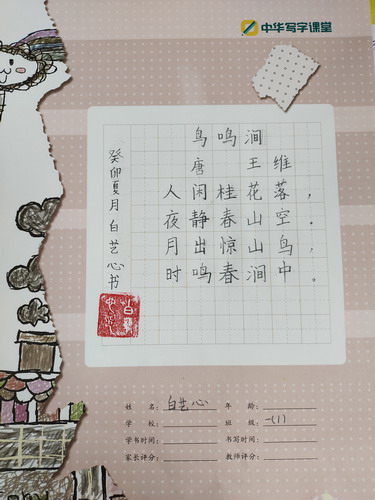 中华写字课堂
鸟鸣涧
唐 王维
人闲桂花落，
夜静春山空。
月出惊山鸟，
时鸣春涧中。
癸卯夏月白艺心书
姓名：白艺心 年龄：
学校： 班级：一(1)
学书时间： 书写时间：
家长评分： 教师评分：